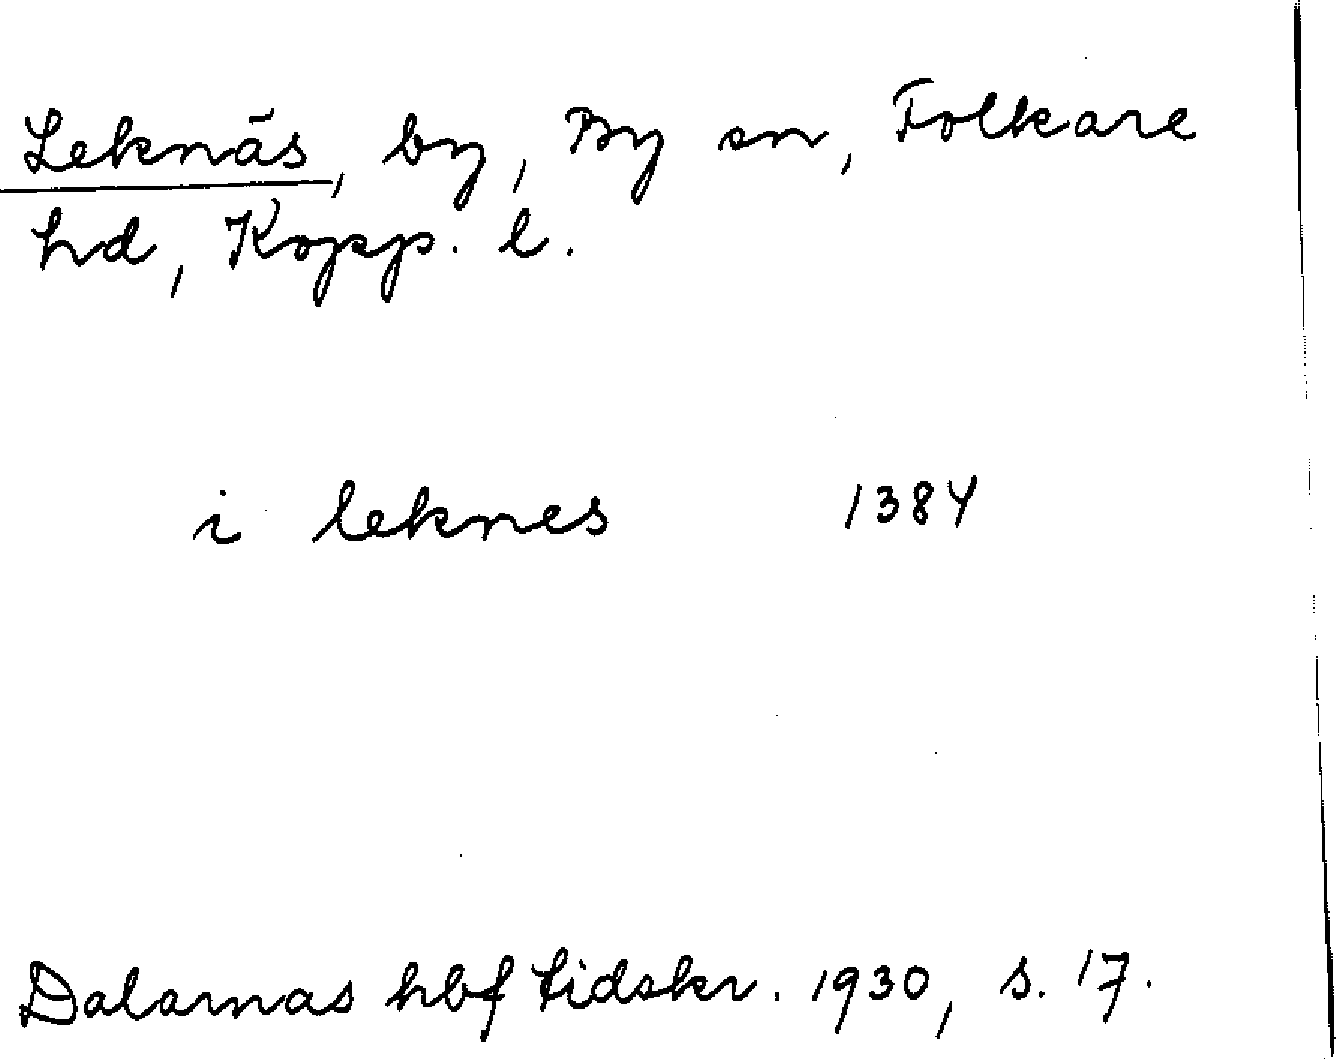 Leknäs, by, By sn, Folkare
hd, Kopp. l.
i leknes 1384
Dalarnas hbf tidskr. 1930, s. 17.